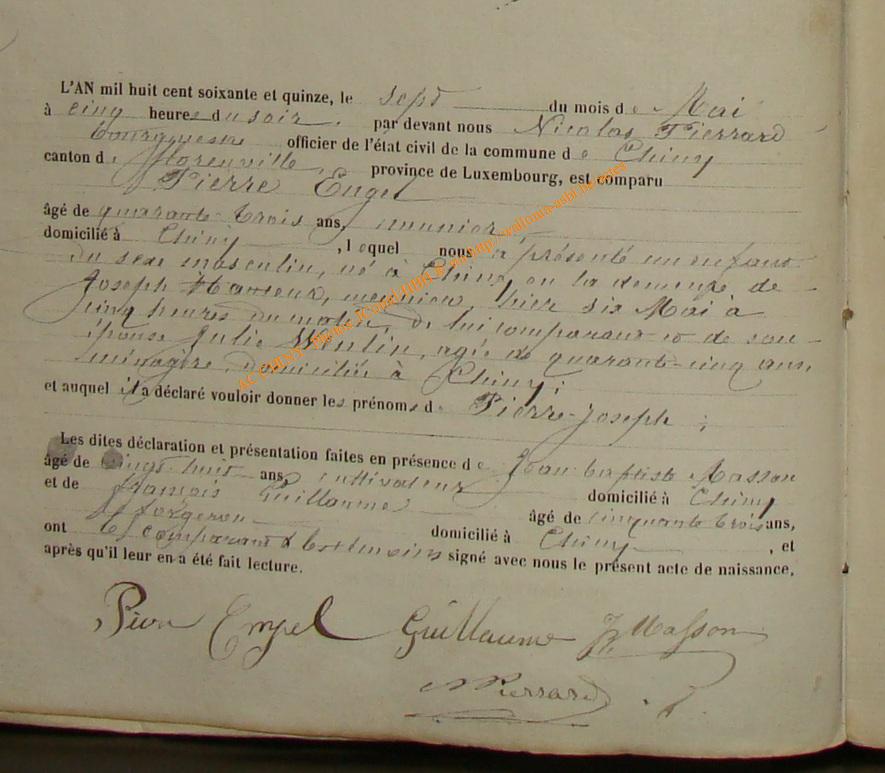 L'AN mil huit cent soixante et quinze, le sept du mois de Mai
à cinq heures du soir, par devant nous Nicolas Pierrard
bourgmestre officier de l'état civil de la commune de Chiny
canton de Florenville, province de Luxembourg, est comparu
Pierre Engel
âgé de quarante-trois ans, meunier,
domicilié à Chiny, lequel nous a présenté un enfant
du sexe masculin, né à Chiny, en la demeure de
Joseph meunier, hier six Mai à
cinq heures du matin, de lui comparant et de son
épouse Julie agée de quarante-cinq ans,
ménagère, domiciliée à Chiny;
et auquel il a déclaré vouloir donner les prénoms de Pierre-Joseph;
Les dites déclaration et présentation faites en présence de Jean-Baptiste Masson
âgé de vingt-huit ans, cultivateur domicilié à Chiny
et de François Guillaume âgé de cinquante-trois ans,
forgeron domicilié à Chiny, et
ont le comparant & les témoins signé avec nous le présent acte de naissance,
après qu'il leur en a été fait lecture.
Engel Guillaume Masson
Pierrard